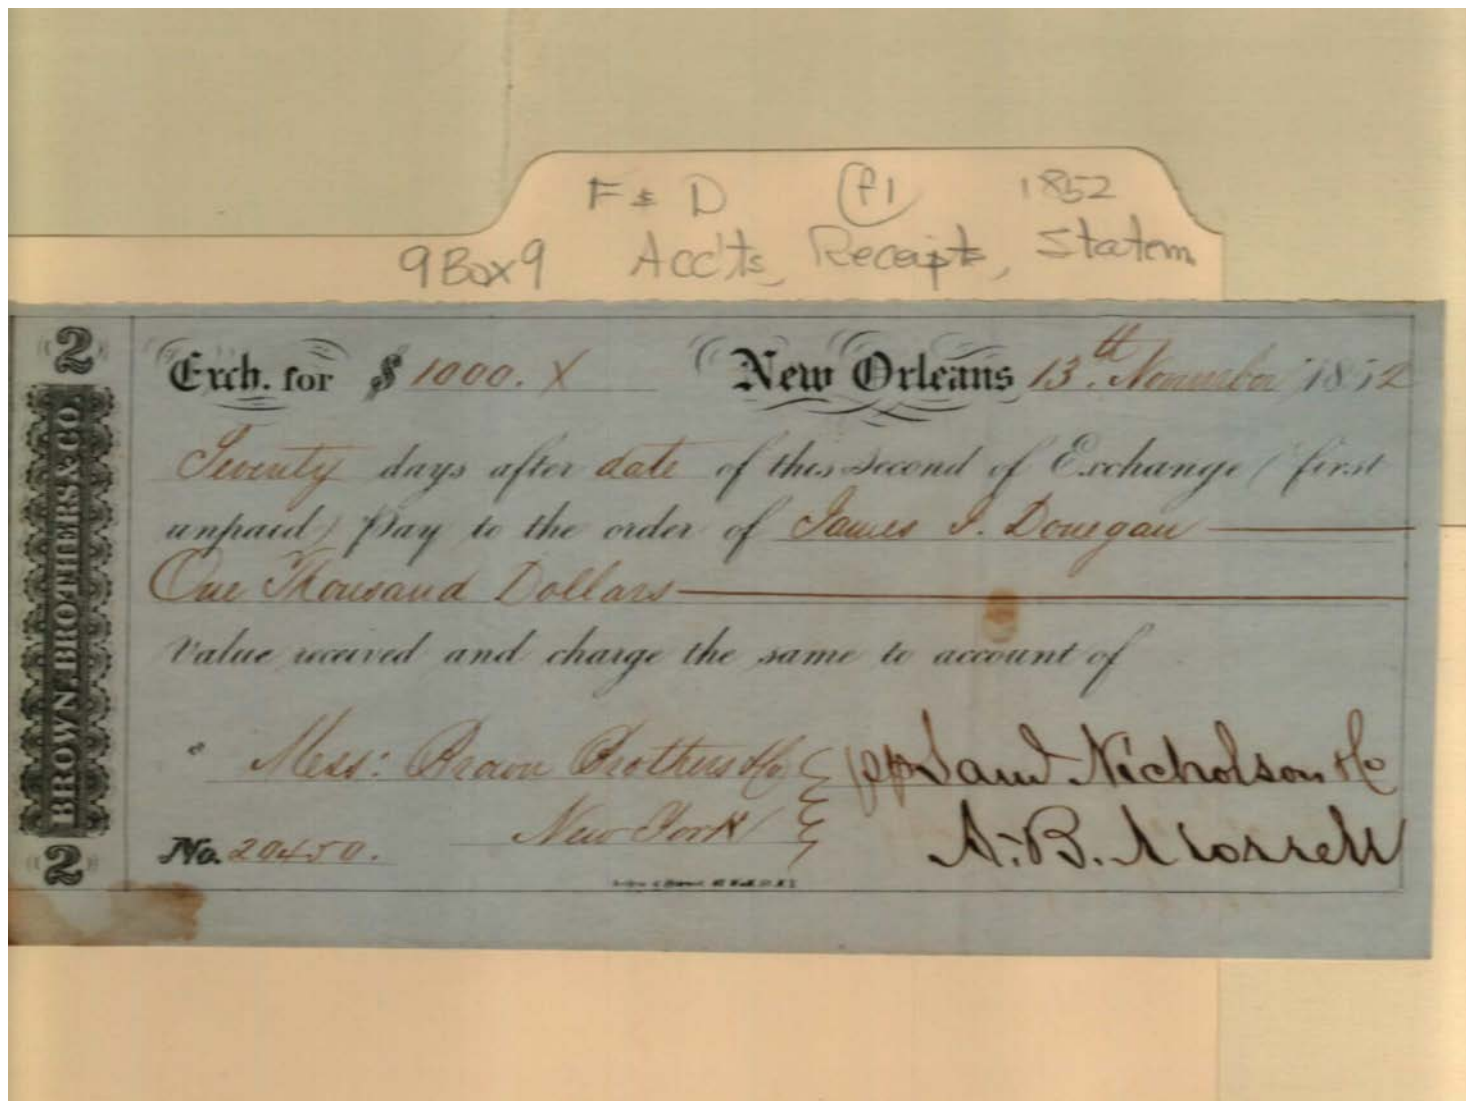 F & D P1 1852
9 Box 9 Acc'ts, Receipts, Statem
2
BROWN, BROTHERS & CO.
2
Exch. for $ 1000. X New Orleans 13th November 1852
Seventy days after date of this second of Exchange (first
unpaid) Pay to the order of James J. Donegan
One Thousand Dollars
Value received and charge the same to account of
Mess: Brown Brothers & Co
New York
No. 20450.
pp Saml Nicholson & Co
A. B.